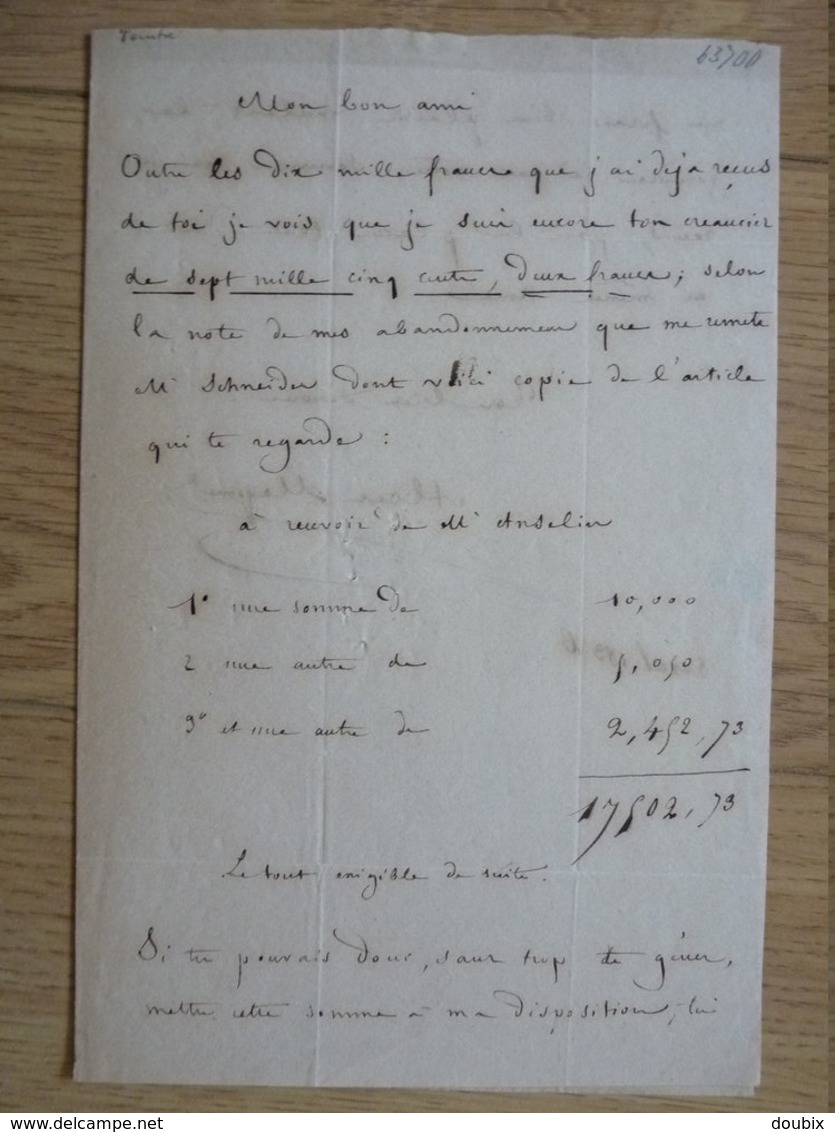 Peintre
63700
Mon bon ami
Outre les dix mille francs que j'ai deja reçus
de toi je vois que je suis encore ton creancier
de sept mille cinq cents, deux francs; selon
la note de mes abandonnemens que me remete
Mr Schneider dont voici copie de l'article
qui te regarde :
à recevoir de Mr Anselier
1º une somme de 10,000
2 une autre de 5,050
3º et une autre de 2,452,73
17502,73
Le tout exigible de suite.
Si tu pouvais donc, sans trop te gêner,
mettre cette somme à ma disposition,
delcampe.net
doubix